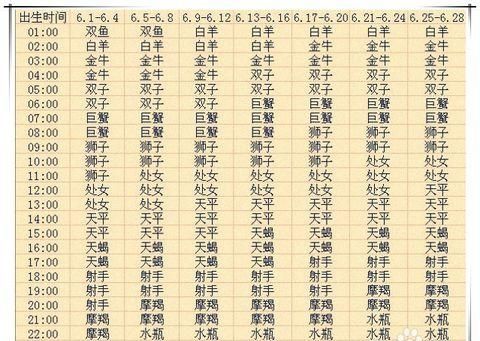 出生时间 6.1-6.4 6.5-6.8 6.9-6.12 6.13-6.16 6.17-6.20 6.21-6.24 6.25-6.28
01:00 双鱼 双鱼 白羊 白羊 白羊 白羊 白羊
02:00 白羊 白羊 白羊 白羊 金牛 金牛 金牛
03:00 金牛 金牛 金牛 金牛 金牛 金牛 金牛
04:00 金牛 金牛 金牛 双子 双子 双子 双子
05:00 双子 双子 双子 双子 双子 双子 双子
06:00 双子 双子 双子 巨蟹 巨蟹 巨蟹 巨蟹
07:00 巨蟹 巨蟹 巨蟹 巨蟹 巨蟹 巨蟹 巨蟹
08:00 巨蟹 巨蟹 巨蟹 狮子 狮子 狮子 狮子
09:00 狮子 狮子 狮子 狮子 狮子 狮子 狮子
10:00 狮子 狮子 狮子 狮子 狮子 处女 处女
11:00 狮子 处女 处女 处女 处女 处女 处女
12:00 处女 处女 处女 处女 处女 处女 天平
13:00 处女 处女 天平 天平 天平 天平 天平
14:00 天平 天平 天平 天平 天平 天平 天平
15:00 天平 天平 天平 天蝎 天蝎 天蝎 天蝎
16:00 天蝎 天蝎 天蝎 天蝎 天蝎 天蝎 天蝎
17:00 天蝎 天蝎 天蝎 天蝎 射手 射手 射手
18:00 射手 射手 射手 射手 射手 射手 射手
19:00 射手 射手 射手 射手 射手 摩羯 摩羯
20:00 射手 射手 摩羯 摩羯 摩羯 摩羯 摩羯
21:00 摩羯 摩羯 摩羯 摩羯 摩羯 水瓶 水瓶
22:00 摩羯 水瓶 水瓶 水瓶 水瓶 水瓶 水瓶